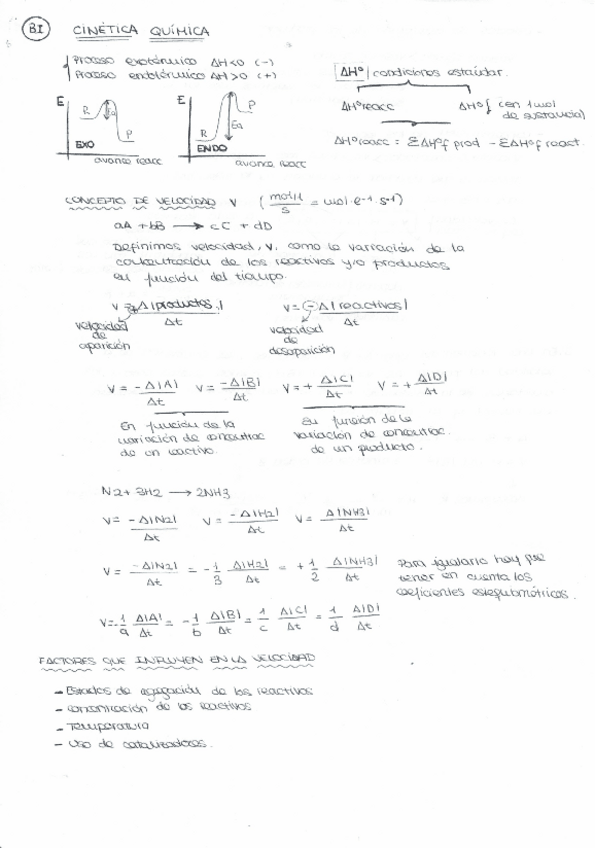 BI CINÉTICA QUÍMICA
Proceso exotérmico ΔH<0 (-)
Proceso endotérmico ΔH>0 (+)
ΔHº | condiciones estándar.
E R Ea P EXO avance reacc
E R Ea P ENDO avance reacc
ΔHº reacc ΔHºf (en 1 mol de sustancia)
ΔHº reacc = ΣΔHºf prod - ΣΔHºf react.
CONCEPTO DE VELOCIDAD V (mol/l / s = mol·l⁻¹·s⁻¹)
aA + bB → cC + dD
Definimos velocidad, v, como la variación de la
concentración de los reactivos y/o productos
en función del tiempo.
V = +Δ|productos| / Δt V = -Δ|reactivos| / Δt
velocidad de aparición velocidad de desaparición
V = -Δ|A| / Δt V = -Δ|B| / Δt V = +Δ|C| / Δt V = +Δ|D| / Δt
En función de la
variación de concentrac
de un reactivo.
En función de la
variación de concentrac.
de un producto.
N2 + 3H2 → 2NH3
V = -Δ|N2| / Δt V = -Δ|H2| / Δt V = Δ|NH3| / Δt
V = -Δ|N2| / Δt = -1/3 Δ|H2| / Δt = +1/2 Δ|NH3| / Δt
Para igualarlo hay que
tener en cuenta los
coeficientes estequiométricos.
V = -1/a Δ|A| / Δt = -1/b Δ|B| / Δt = 1/c Δ|C| / Δt = 1/d Δ|D| / Δt
FACTORES QUE INFLUYEN EN LA VELOCIDAD
- Estados de agregación de los reactivos
- concentración de los reactivos
- Temperatura
- Uso de catalizadores.